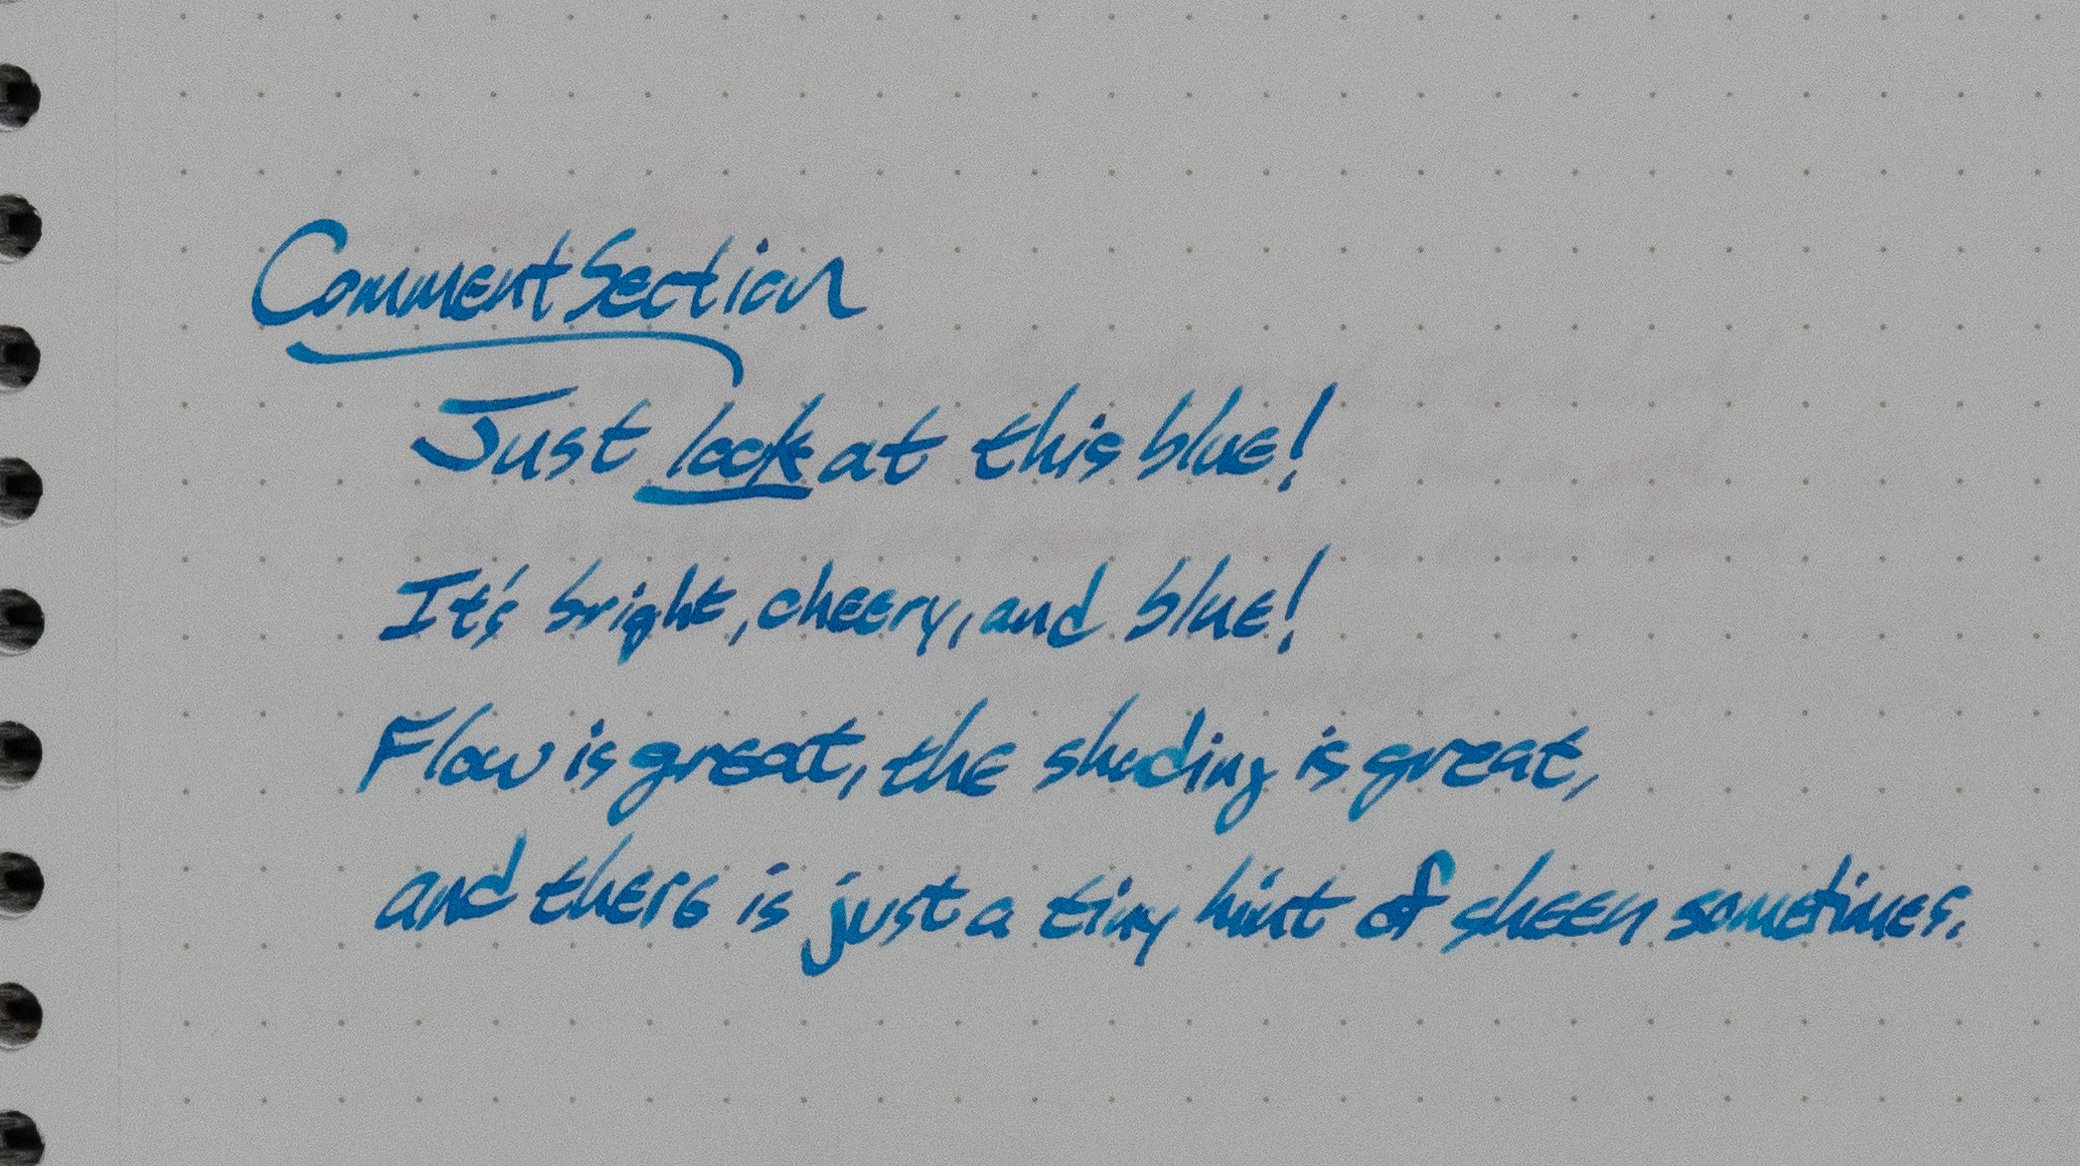 Comment Section
Just look at this blue!
It's bright, cheery, and blue!
Flow is great, the shading is great,
and there is just a tiny hint of sheen sometimes.